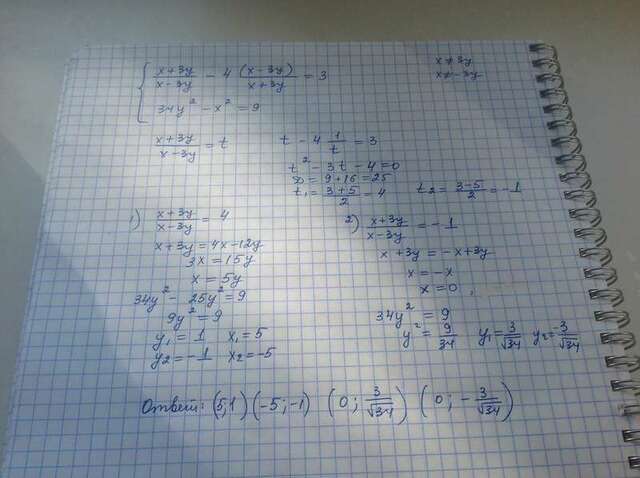 { (x+3y)/(x-3y) - 4 (x-3y)/(x+3y) = 3
34y² - x² = 9
x≠3y
x≠-3y
(x+3y)/(x-3y) = t
t - 4 1/t = 3
t² - 3t - 4 = 0
D = 9+16 = 25
t₁ = (3+5)/2 = 4
t₂ = (3-5)/2 = -1
1) (x+3y)/(x-3y) = 4
x+3y = 4x-12y
3x = 15y
x = 5y
34y² - 25y² = 9
9y² = 9
y₁ = 1 x₁ = 5
y₂ = -1 x₂ = -5
2) (x+3y)/(x-3y) = -1
x+3y = -x+3y
x = -x
x = 0,
34y² = 9
y² = 9/34 y₁ = 3/√34 y₂ = -3/√34
Ответ: (5;1) (-5;-1) (0; 3/√34) (0; -3/√34)